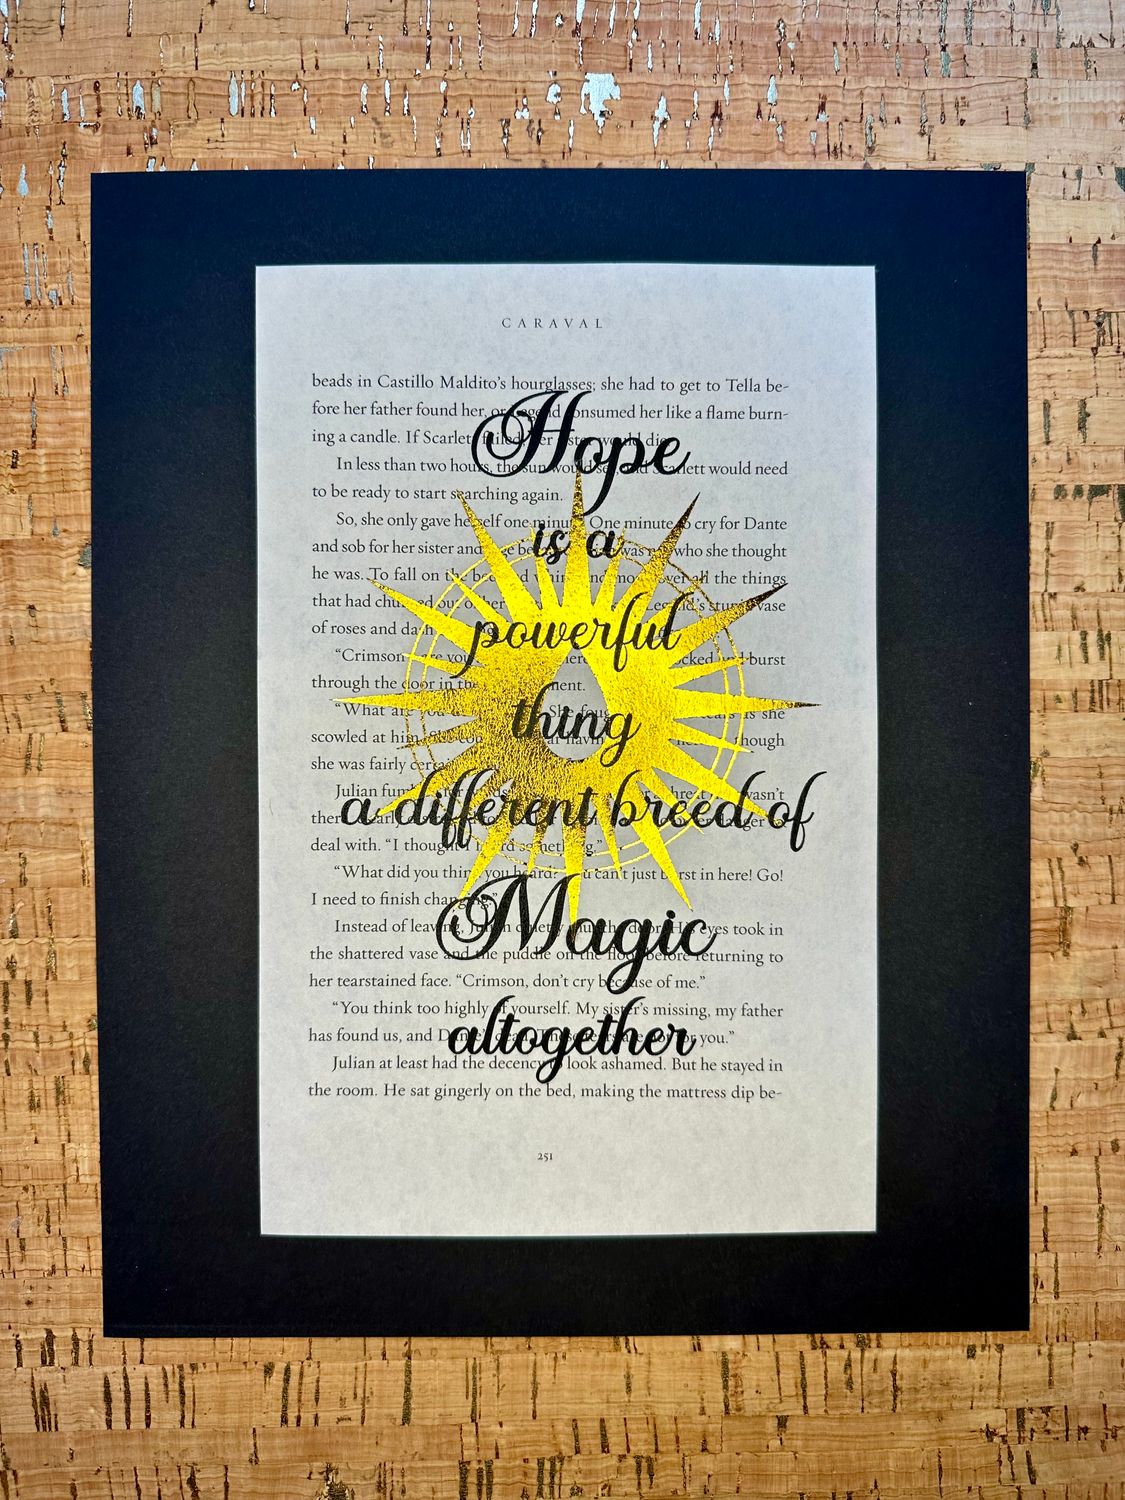 CARAVAL
beads in Castillo Maldito's hourglasses; she had to get to Tella be-
fore her father found her, or Legend consumed her like a flame burn-
ing a candle. If Scarlett failed, her sister would die.
In less than two hours, the sun would set, and Scarlett would need
to be ready to start searching again.
So, she only gave herself one minute. One minute to cry for Dante
and sob for her sister and was not who she thought
he was. To fall on the bed and over all the things
that had out of her Legend's stupid vase
of roses and dash
"Crimson—are you burst
through the door in the
"What are you She as she
scowled at him. though
she was fairly
Julian wasn't
deal with. "I thought I heard something."
"What did you think you heard? You can't just burst in here! Go!
I need to finish changing."
Instead of leaving, Julian quietly shut the door. His eyes took in
the shattered vase and the puddle on the floor before returning to
her tearstained face. "Crimson, don't cry because of me."
"You think too highly of yourself. My sister's missing, my father
has found us, and Dante's dead. These tears are not for you."
Julian at least had the decency to look ashamed. But he stayed in
the room. He sat gingerly on the bed, making the mattress dip be-
251
Hope
is a
powerful
thing
a different breed of
Magic
altogether